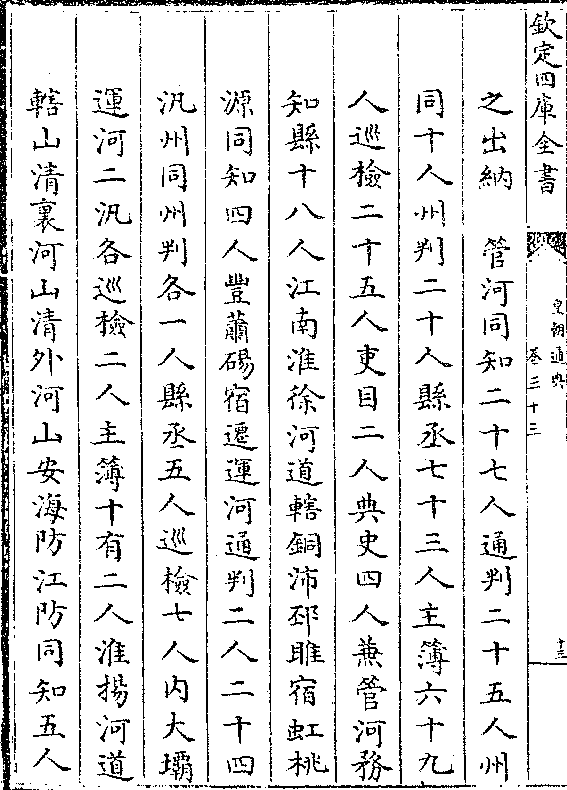 欽定四庫全書
皇朝通典
卷三十三
十三
之出納　管河同知二十七人通判二十五人州
同十人州判二十人縣丞七十三人主簿六十九
人巡檢二十五人吏目二人典史四人兼管河務
知縣十八人江南淮徐河道轄銅沛邳睢宿虹桃
源同知四人豐蕭碭宿遷運河通判二人二十四
汛州同州判各一人縣丞五人巡檢七人内大壩
運河二汛各巡檢二人主簿十有二人淮揚河道
轄山清裏河山清外河山安海防江防同知五人